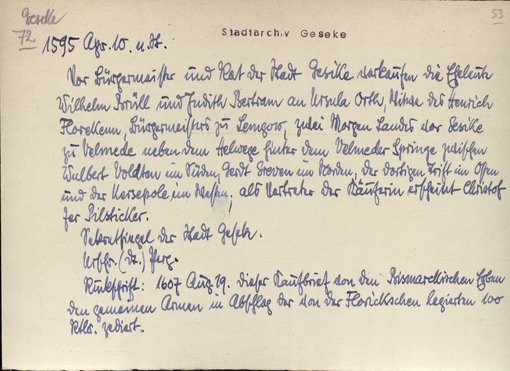 Geseke
72
53
Stadtarchiv Geseke
1595 Apr. 10. n. St.
Vor Bürgermeister und Rat der Stadt Gesike verkaufen die Eheleute
Wilhelm Brüll und Judith Bertram an Ursula Orth, Witwe des Henrich
Florekenn, Bürgermeisters zu Lemgow, zwei Morgen Landes vor Gesike
zu Velmede neben dem Helwege hinter dem Velmeder Springe zwischen
Wulbert Voldten im Süden, Gerdt Greven im Norden, der dortigen Trift im Osten
und der Kersepole im Westen, als Vertreter der Käuferin erscheint Christof
fer Pilsticker.
Sekretsiegel der Stadt Geseke.
Urschr. (dt.) Perg.
Rückschrift: 1607 Aug. 19. dieser Kaufbrief von den Bismarckischen Erben
den gemeinen Armen in Abschlag der von der Florickschen legierten 100
Rtlr. zediert.